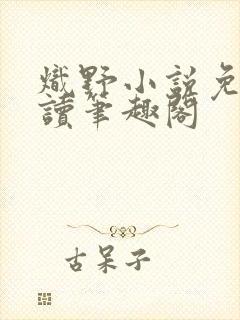 熾野小說免
讀筆趣閣
古呆子